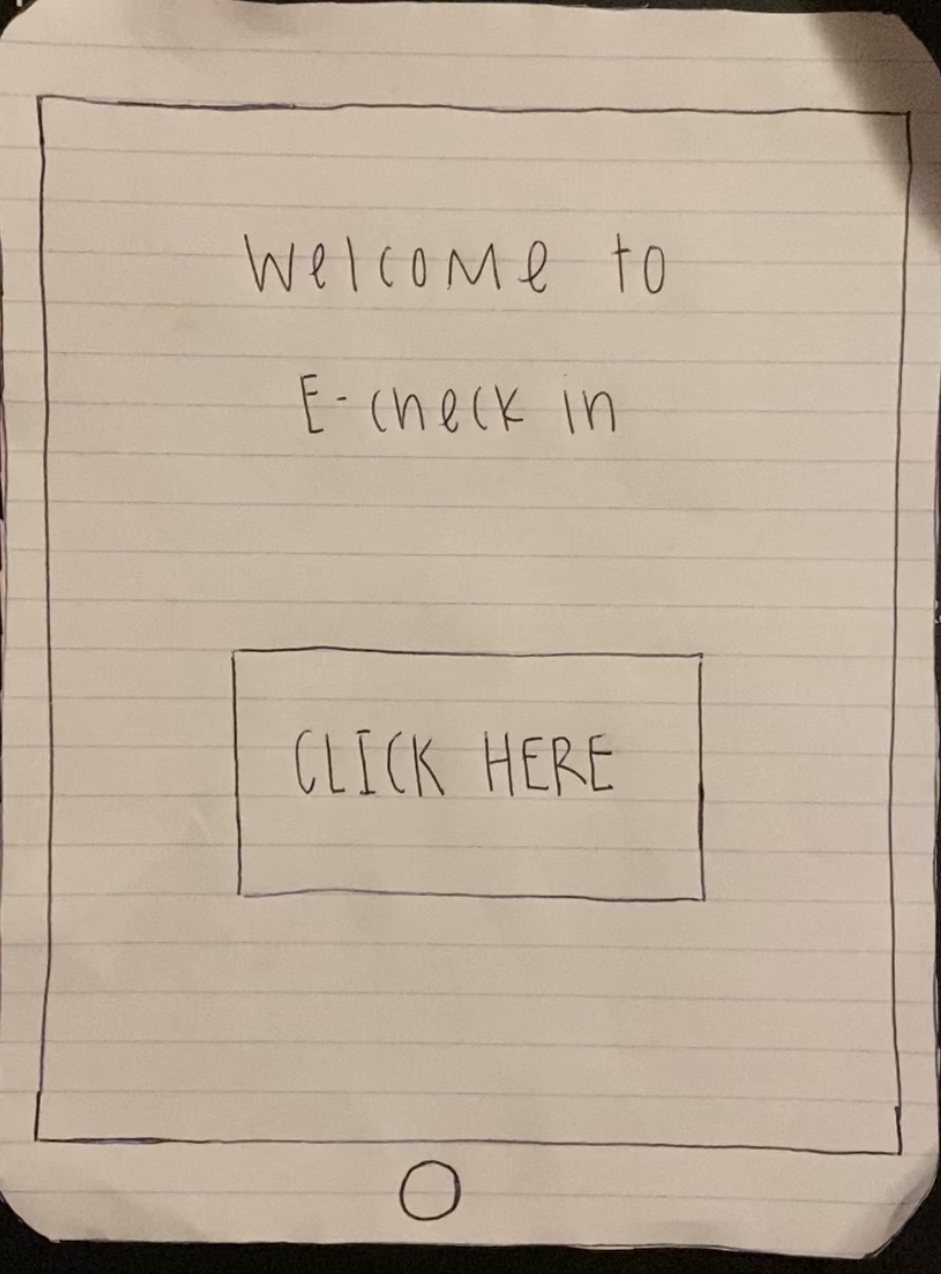 Welcome to
E-check in
CLICK HERE